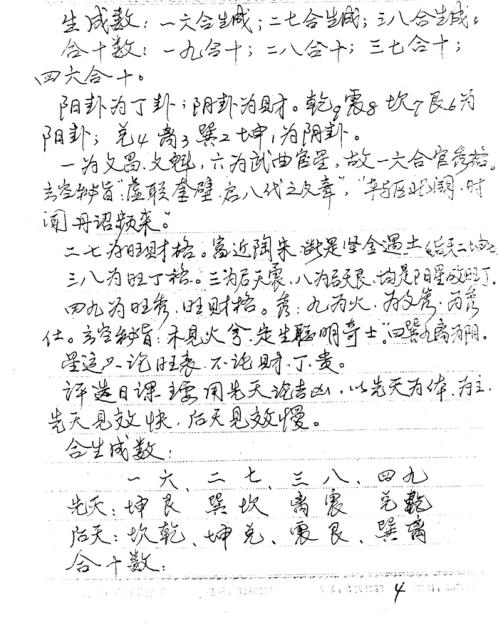 生成数：一六合生成；二七合生成；三八合生成。
合十数：一九合十；二八合十；三七合十；
四六合十。
阳卦为丁卦；阴卦为财。乾9震8坎7艮6为
阳卦；兑4离3巽2坤1为阴卦。
一为文昌、文魁，六为武曲官星，故一六合官贵格。
玄空秘旨：“虚联奎壁，启八代之文章”，
闻丹诏频来。”
二七为旺财格。富近陶朱，断是坚金遇土（后天二坤土
三八为旺丁格。三为后天震，八为后天艮，均是阳星故旺丁。
四九为旺秀，旺财格。秀：九为火，为文秀，为秀
仕。玄空秘旨：木见火兮，定生聪明奇士。”四巽九离为阴
星 只论旺衰，不论财、丁、贵。
评选日课主要用先天论吉凶，以先天为体，为主，
先天见效快，后天见效慢。
合生成数：
一六、二七、三八、四九
先天：坤艮 巽坎 离震 兑乾
后天：坎乾、坤兑、震艮、巽离
合十数：
4